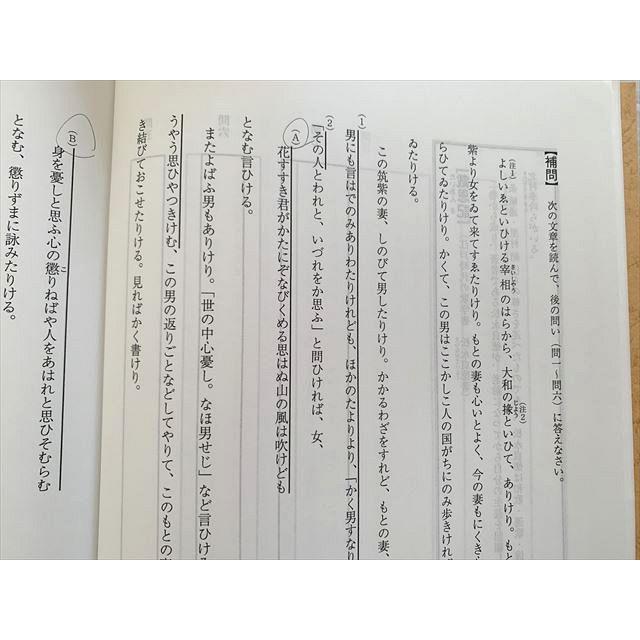 【補問】 次の文章を読んで、後の問い（問一～問六）に答えなさい。
(注1)よしいゑといひける宰相さいしようのはらから、大和の掾じよう(注2)といひて、ありけり。もと
紫より女をゐて来てすゑたりけり。もとの妻も心いとよく、今の妻もにくき
らひてゐたりけり。かくて、この男はここかしこ人の国がちにのみ歩きけれ
ゐたりける。
この筑紫の妻、しのびて男したりけり。かかるわざをすれど、もとの妻、
(1)男にも言はでのみありわたりけれども、ほかのたよりより、「かく男すなり
(2)「その人とわれと、いづれをか思ふ」と問ひければ、女、
(A)花すすき君がかたにぞなびくめる思はぬ山の風は吹けども
となむ言ひける。
またよばふ男もありけり。「世の中心憂し。なほ男せじ」など言ひける
うやう思ひやつきけむ、この男の返りごとなどしてやりて、このもとの
き結びておこせたりける。見ればかく書けり。
(B)身を憂しと思ふ心の懲こりねばや人をあはれと思ひそむらむ
となむ、懲りずまに詠みたりける。